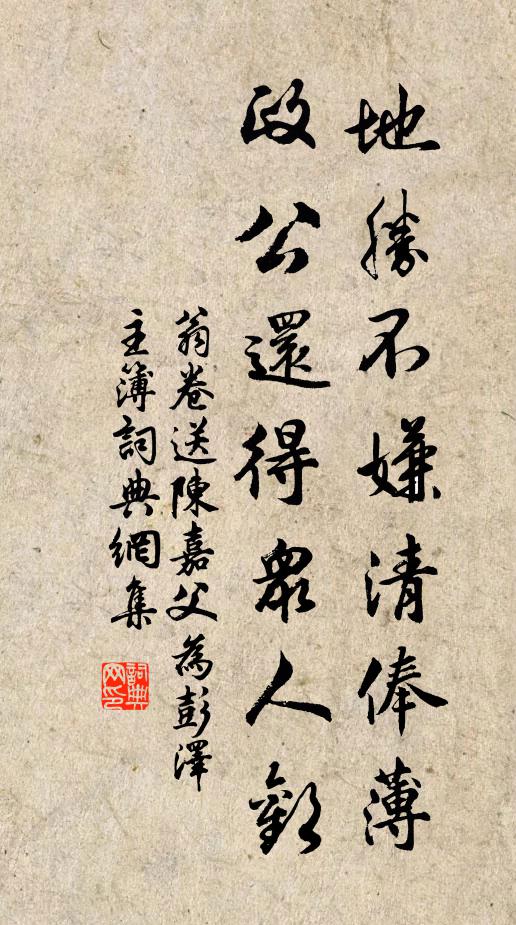 地勝不嫌清俸薄
政公還得眾人歡
翁卷送陳嘉父為彭澤
主簿詞典網集
詞典网印